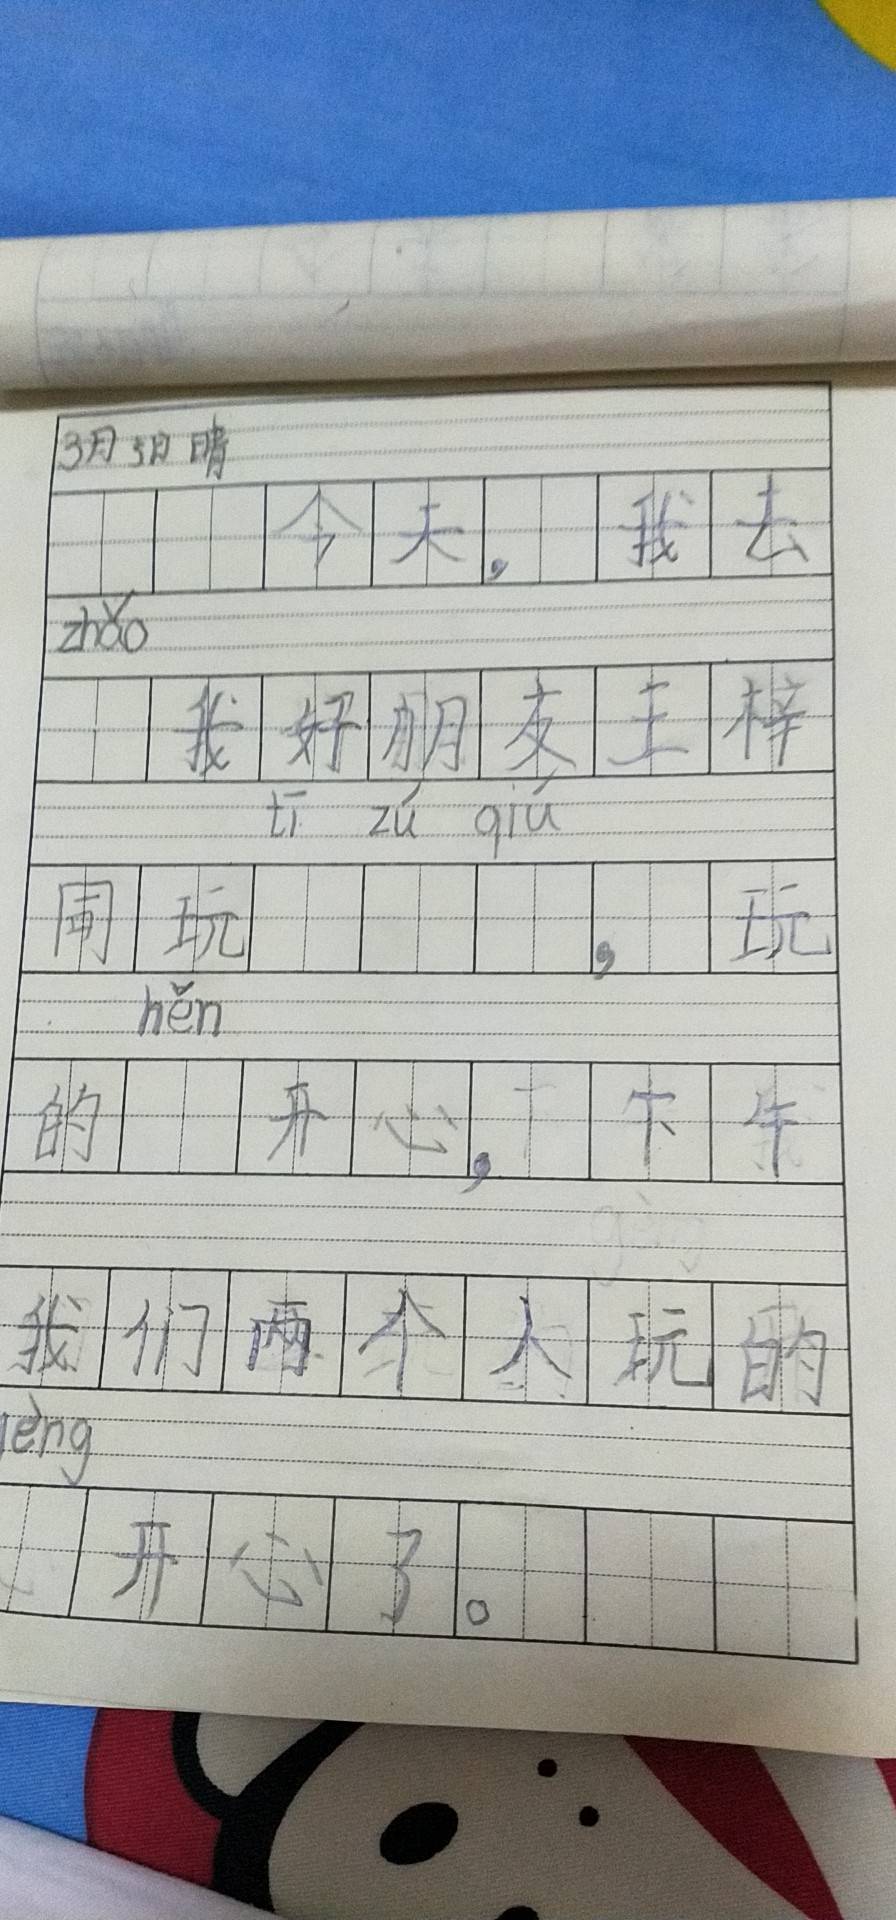 3月3日 晴
今天，我去
zhǎo
我好朋友王梓
tī zú qiú
周玩，玩
hěn
的开心，下午
我们两个人玩的
gèng
开心了。